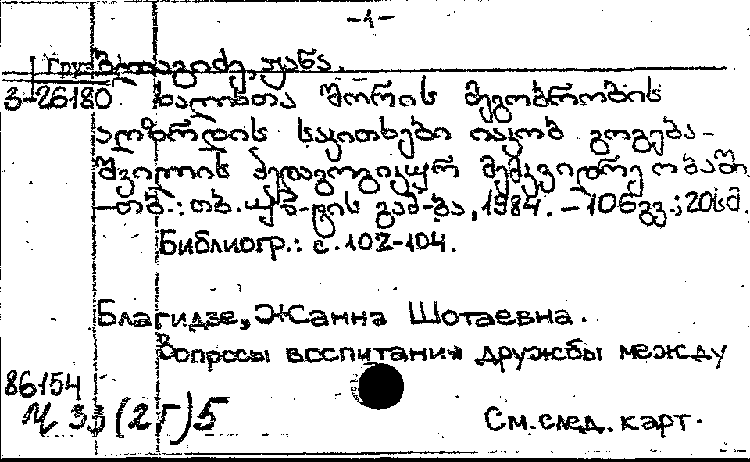 -1-
ბლაგიძე, ჟანა.
3-26180 ხალხთა შორის მეგობრობის
აღზრდის საკითხები იაკობ გოგება-
შვილის პედაგოგიკურ მემკვიდრეობაში
— თბ.: თბ. უნ-ტის გამ-ბა, 1984. — 106გვ.; 20სმ.
Библиогр.: с. 102-104.
Благидзе, Жанна Шотаевна.
Вопросы воспитания дружбы между
86154
Ч 33(2Г)5 См. след. карт.